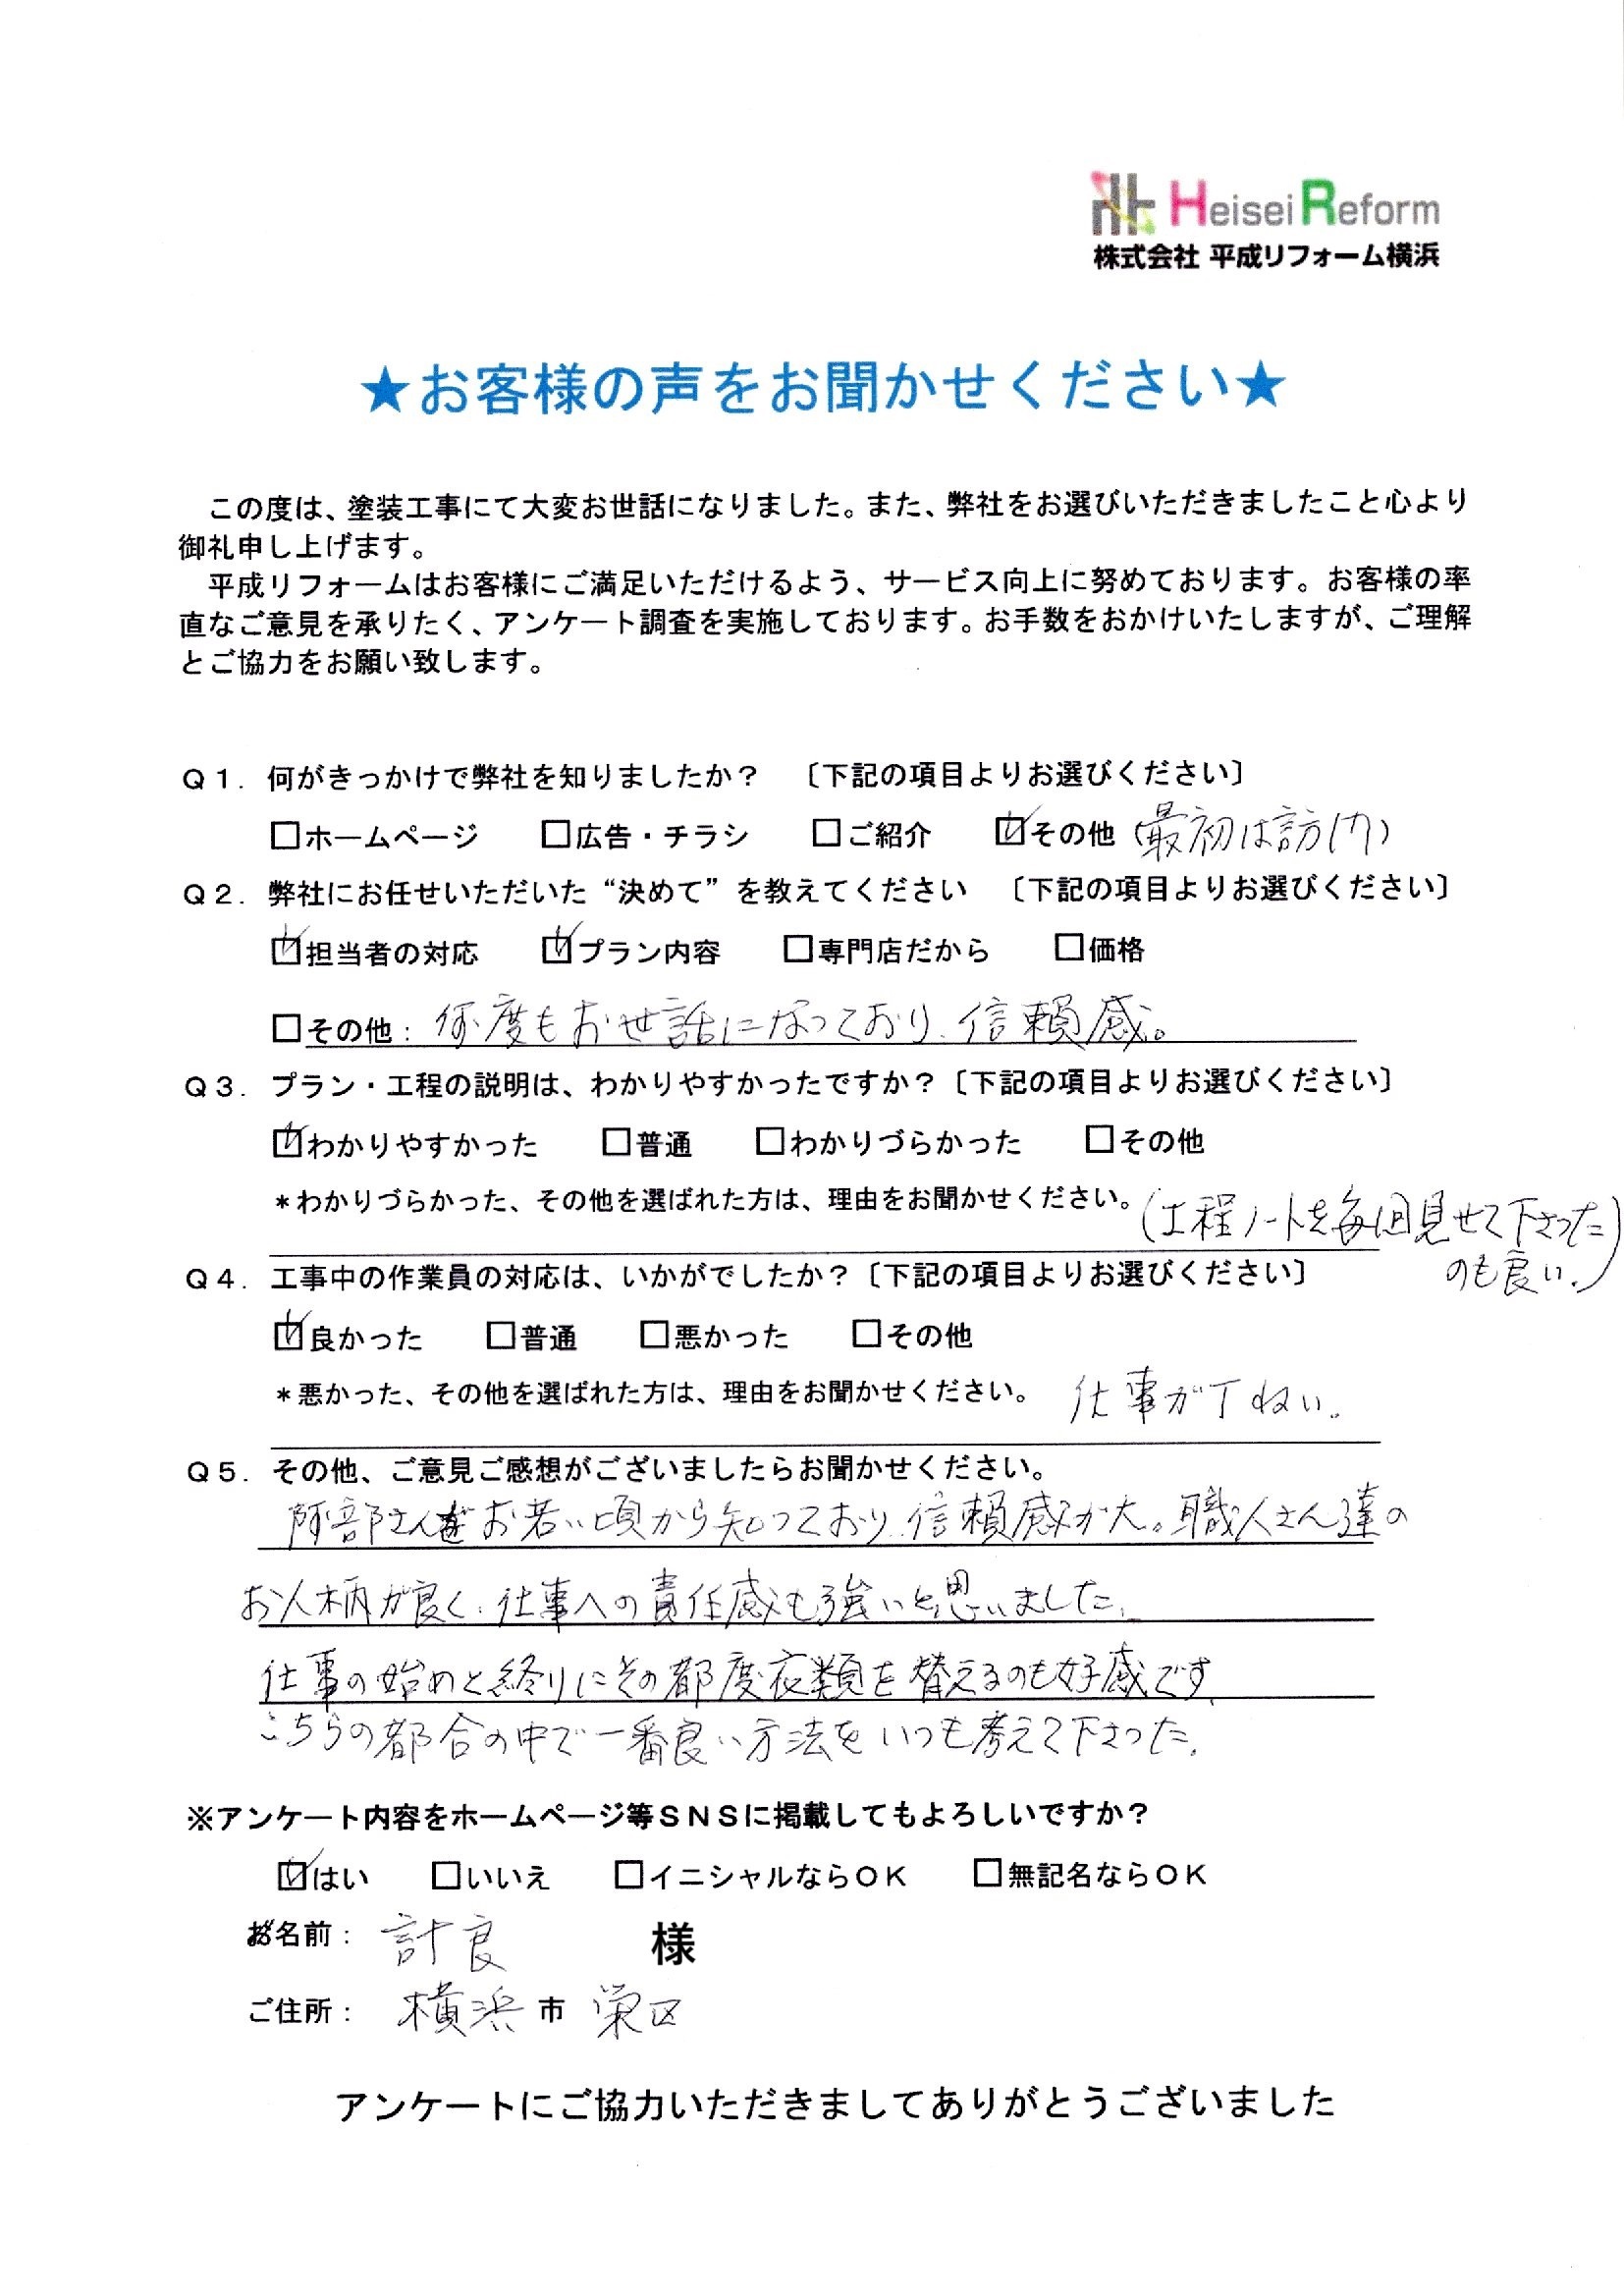 Heisei Reform
株式会社 平成リフォーム横浜
★お客様の声をお聞かせください★
この度は、塗装工事にて大変お世話になりました。また、弊社をお選びいただきましたこと心より
御礼申し上げます。
平成リフォームはお客様にご満足いただけるよう、サービス向上に努めております。お客様の率
直なご意見を承りたく、アンケート調査を実施しております。お手数をおかけいたしますが、ご理解
とご協力をお願い致します。
Q1. 何がきっかけで弊社を知りましたか? 〔下記の項目よりお選びください〕
□ホームページ □広告・チラシ □ご紹介 ☑その他 (最初は訪問)
Q2. 弊社にお任せいただいた“決めて”を教えてください 〔下記の項目よりお選びください〕
☑担当者の対応 ☑プラン内容 □専門店だから □価格
□その他: 何度もお世話になっており、信頼感。
Q3. プラン・工程の説明は、わかりやすかったですか?〔下記の項目よりお選びください〕
☑わかりやすかった □普通 □わかりづらかった □その他
*わかりづらかった、その他を選ばれた方は、理由をお聞かせください。
(工程ノートを毎回見せて下さった
のも良い。)
Q4. 工事中の作業員の対応は、いかがでしたか?〔下記の項目よりお選びください〕
☑良かった □普通 □悪かった □その他
*悪かった、その他を選ばれた方は、理由をお聞かせください。 仕事が丁ねい。
Q5. その他、ご意見ご感想がございましたらお聞かせください。
阿部さんをお若い頃から知っており、信頼感が大。職人さん達の
お人柄が良く、仕事への責任感も強いと思いました。
仕事の始めと終りにその都度衣類を替えるのも好感です。
こちらの都合の中で一番良い方法をいつも考えて下さった。
※アンケート内容をホームページ等SNSに掲載してもよろしいですか?
☑はい □いいえ □イニシャルならOK □無記名ならOK
お名前: 計良 様
ご住所: 横浜 市 栄区
アンケートにご協力いただきましてありがとうございました